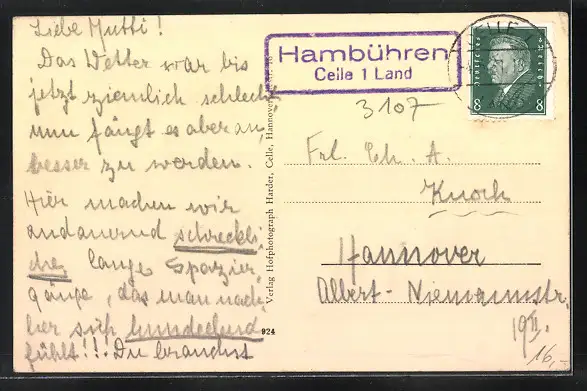 Liebe Mutti!
Das Wetter war bis
jetzt ziemlich schlecht
nun fängt es aber an,
besser zu werden.
Hier machen wir
andauernd schreckli-
che lange Spazier-
gänge, das man nach-
her sich hundeelend
fühlt!!. Du brauchst
Verlag Hofphotograph Harder, Celle, Hannoversch
924
Hambühren
Celle 1 Land
3107
CELLE
8 8
Frl. Ch. A.
Knoch
Hannover
Albert-Niemannstr.
19 II.
16,-